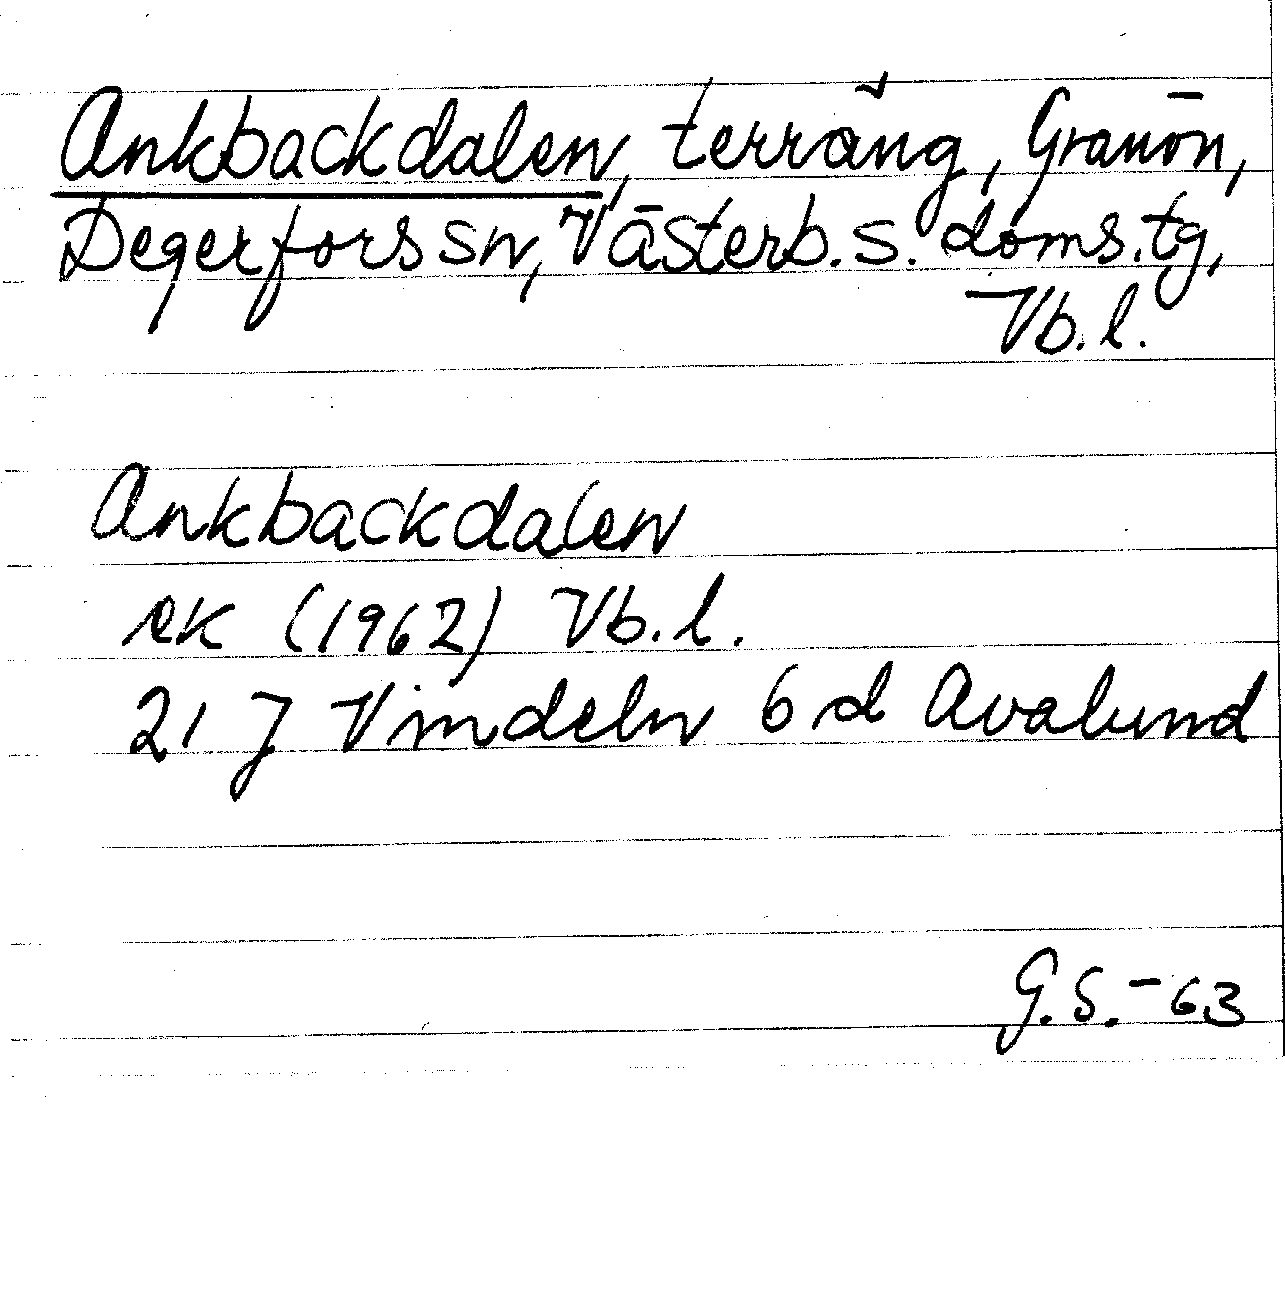 Ankbackdalen, terräng, Granön,
Degerfors sn, Västerb. s. doms. tg,
Vb. l.
Ankbackdalen
ek (1962) Vb. l.
21 J Vindeln 6 d Avalund
G. S. - 63